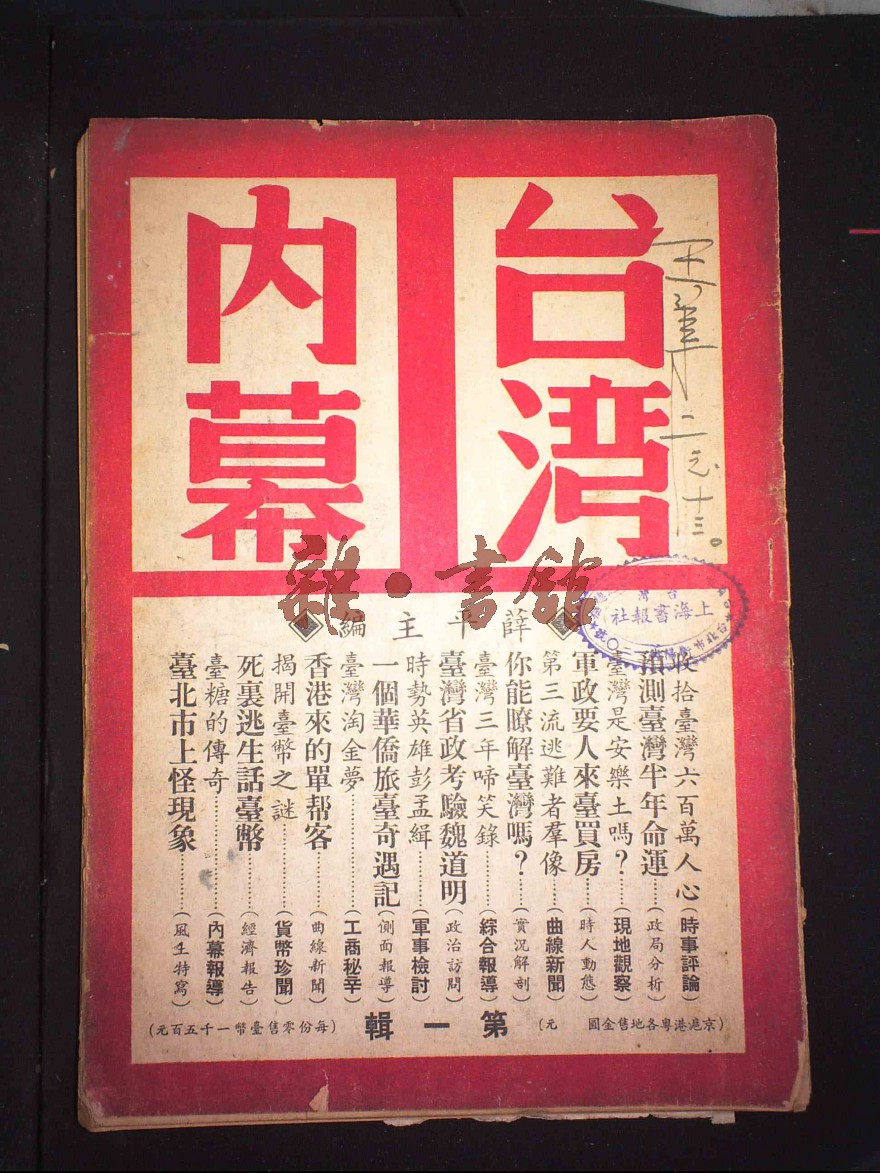 台灣
内幕
薛平主編
收拾臺灣六百萬人心(時事評論)
預測臺灣半年命運……(政局分析)
臺灣是安樂土嗎?……(現地觀察)
軍政要人來臺買房……(時人動態)
第三流逃難者羣像……(曲線新聞)
你能瞭解臺灣嗎?……(實況解剖)
臺灣三年啼笑錄……(綜合報導)
臺灣省政考驗魏道明(政治訪問)
時勢英雄彭孟緝……(軍事檢討)
一個華僑旅臺奇遇記(側面報導)
臺灣淘金夢……(工商秘辛)
香港來的單帮客……(曲線新聞)
揭開臺幣之謎……(貨幣珍聞)
死裏逃生話臺幣……(經濟報告)
臺糖的傳奇……(內幕報導)
臺北市上怪現象……(風生特寫)
第一輯
(京滬港粵各地售金圓 元)
(每份零售臺幣一千五百元)
台灣
上海書報社
雜·書館
二元十三。